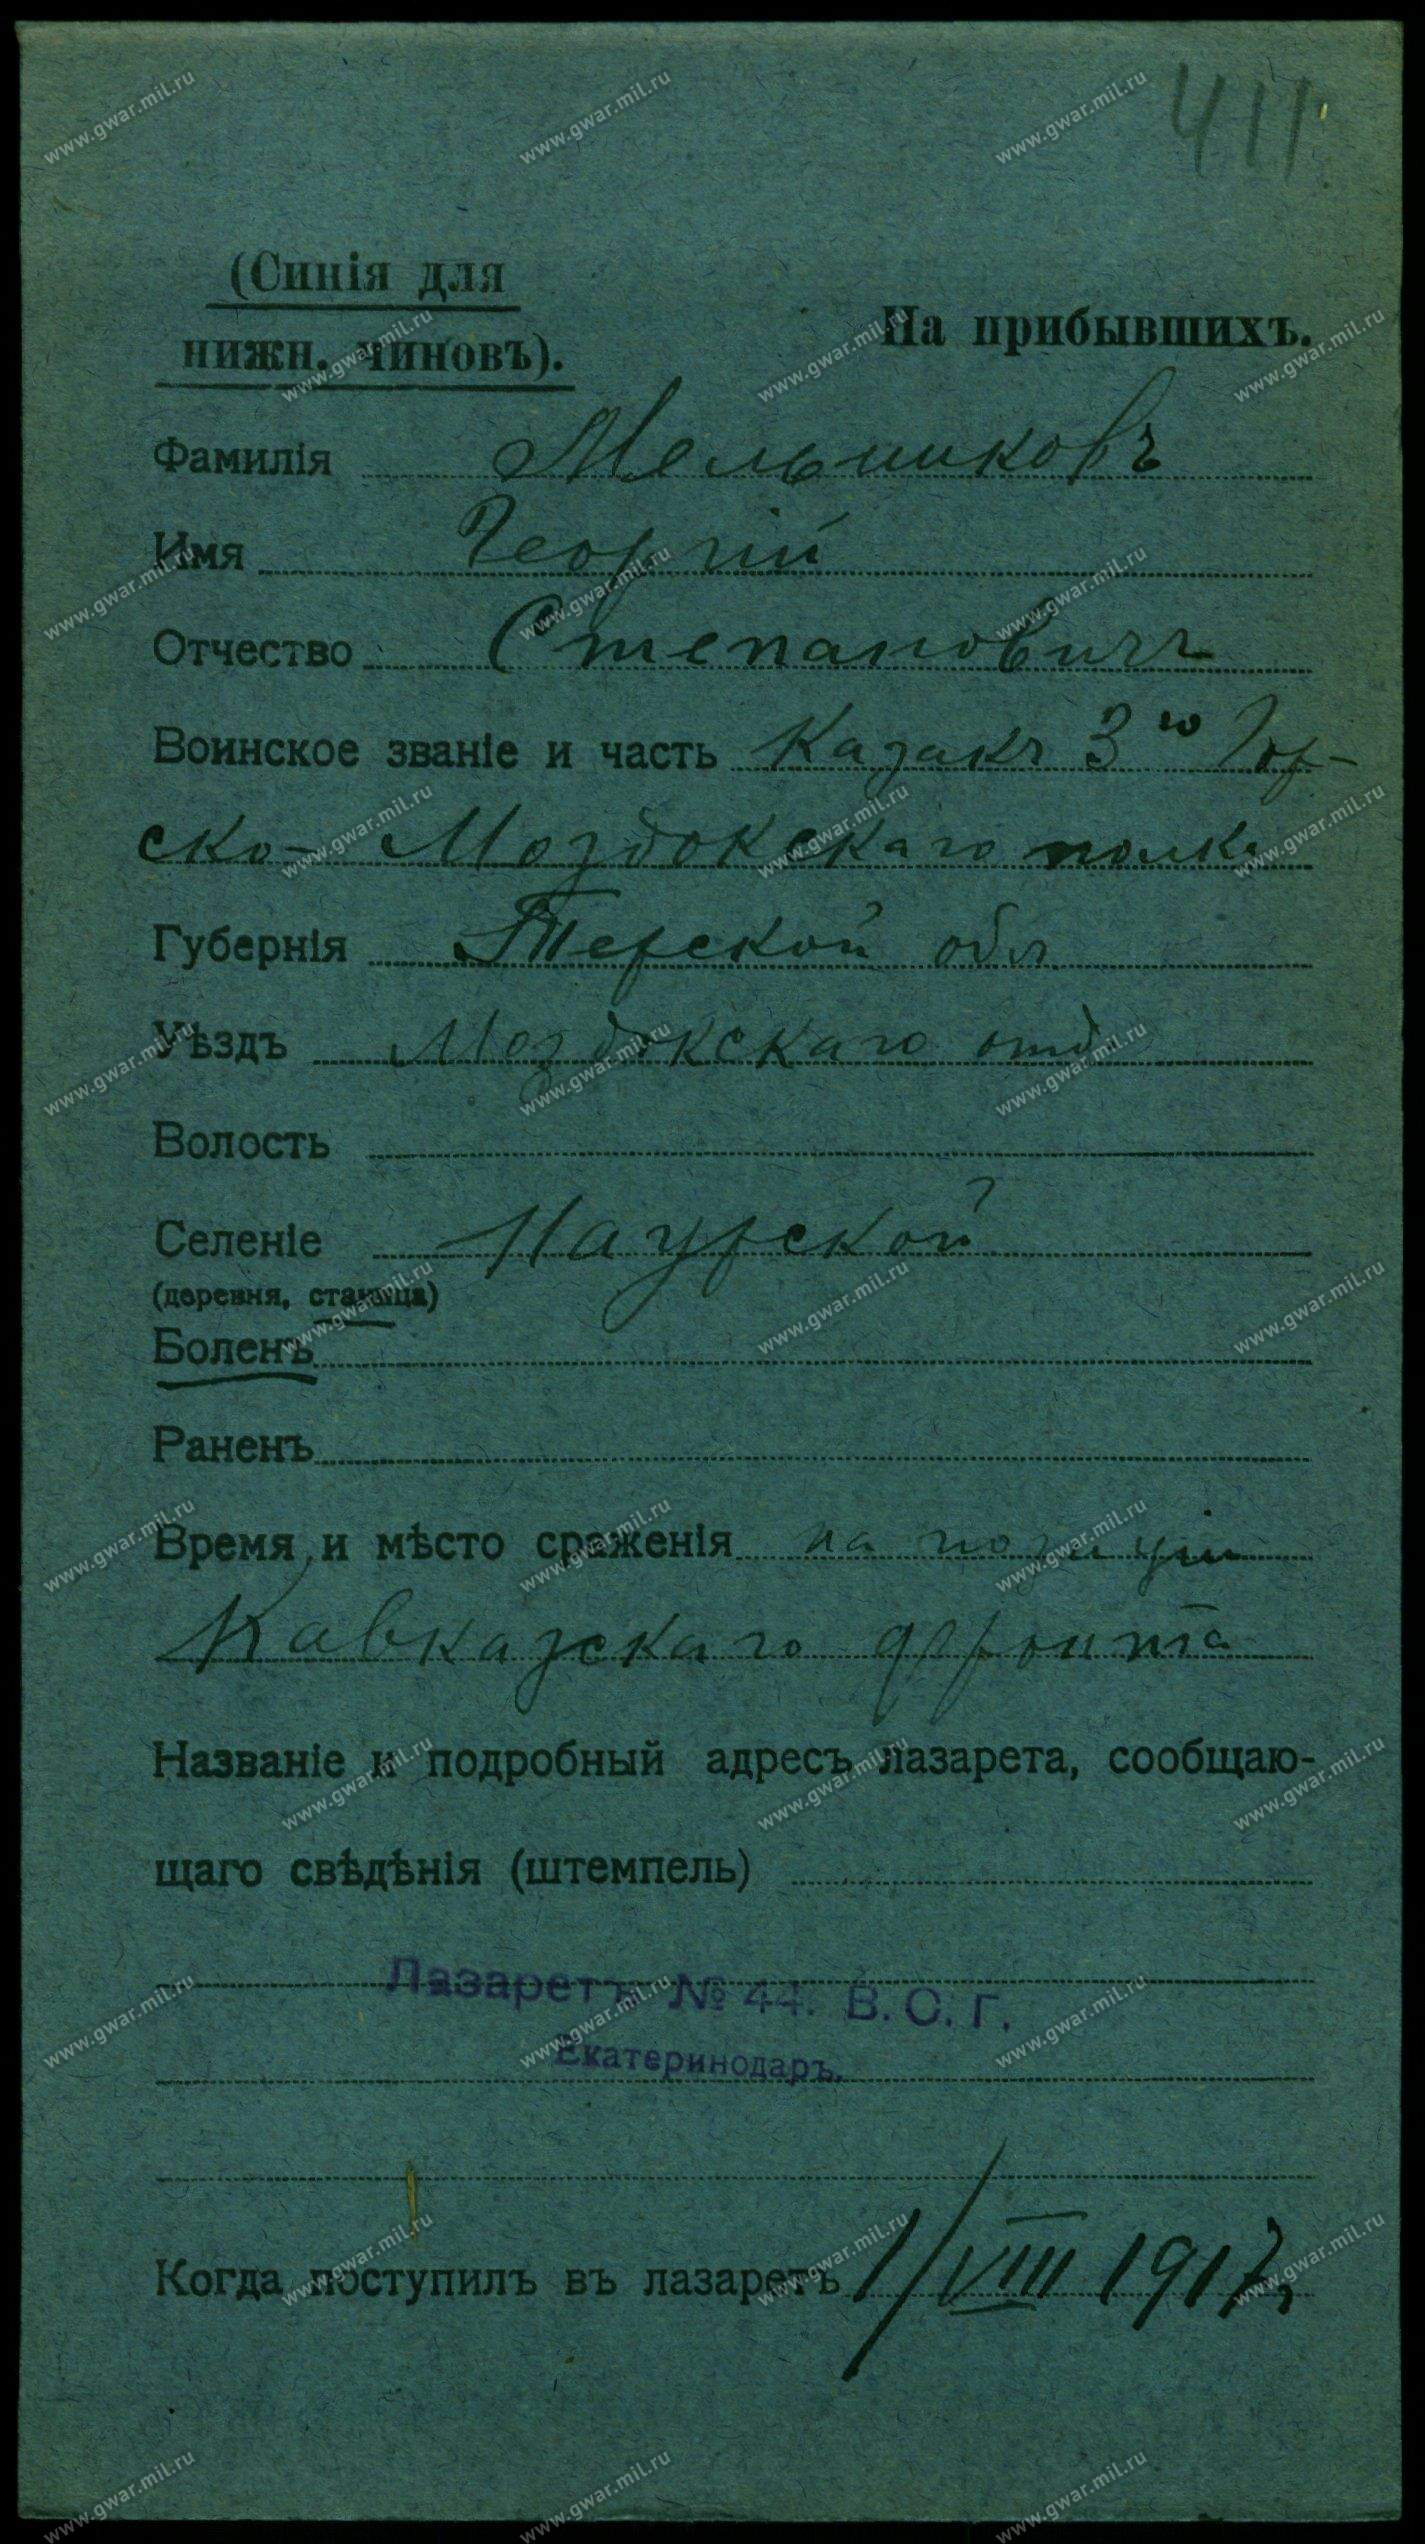 411.
(Синія для
нижн. чиновъ).
На прибывшихъ.
Фамилія Мельниковъ
Имя Георгій
Отчество Степановичъ
Воинское званіе и часть Казакъ 3го Гор-
ско-Моздокскаго полка
Губернія Терской обл
Уѣздъ Моздокскаго отд.
Волость
Селеніе Наурской
(деревня, станица)
Боленъ
Раненъ
Время и мѣсто сраженія на позиціи
Кавказскаго фронта
Названіе и подробный адресъ лазарета, сообщаю-
щаго свѣдѣнія (штемпель)
Лазаретъ № 44. В. С. Г.
Екатеринодаръ.
Когда поступилъ въ лазаретъ 1/VIII 1917г.
www.gwar.mil.ru